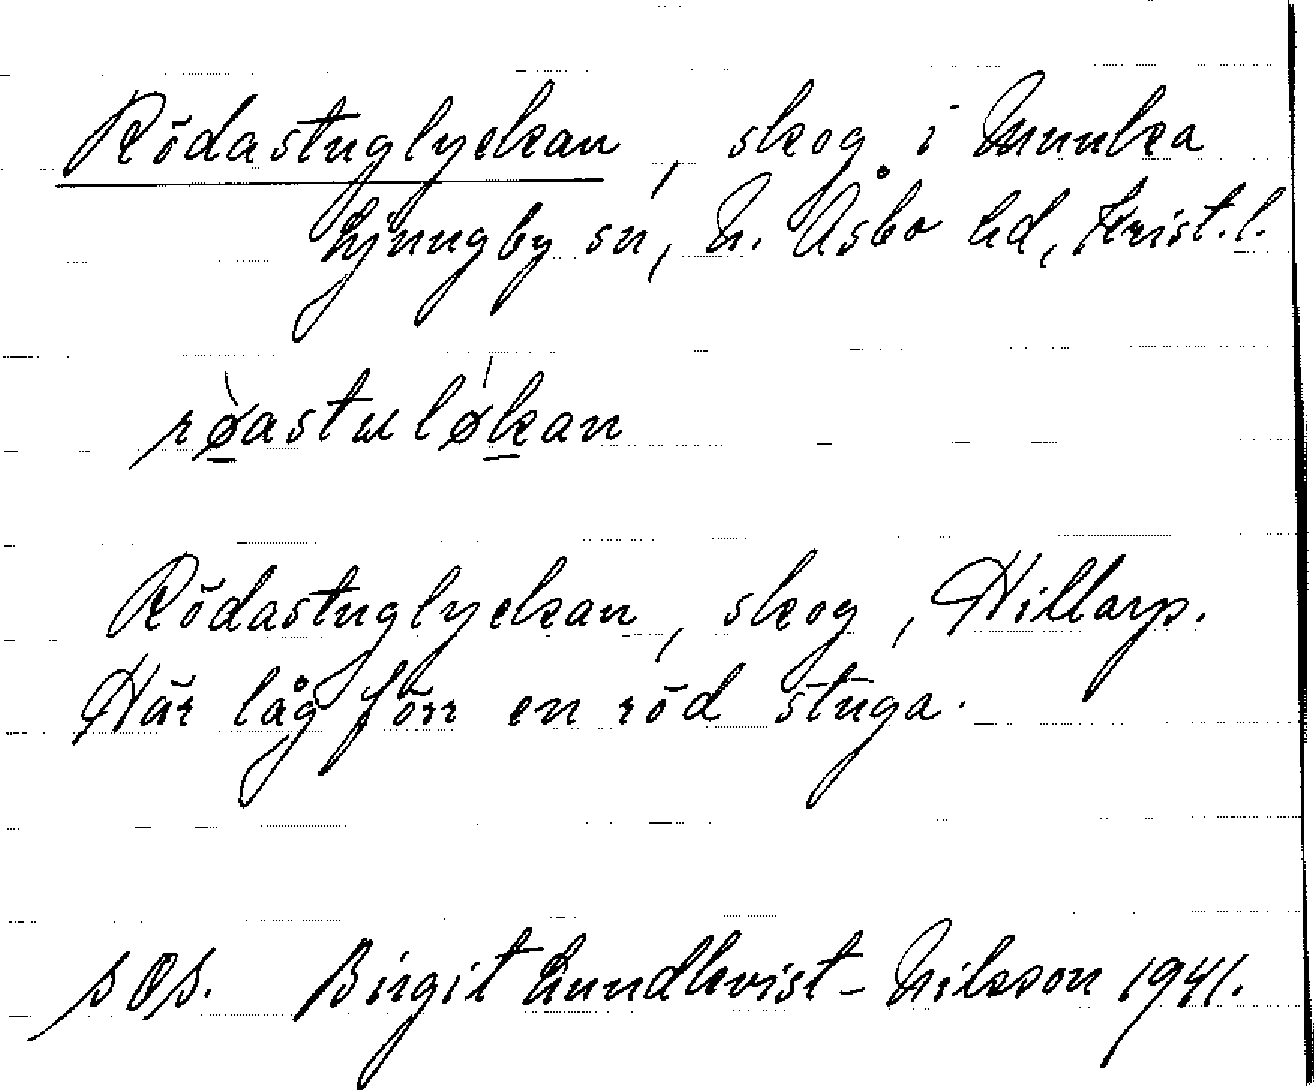 Rödastuglyckan, skog i Munka
Ljungby sn, N. Åsbo hd, Krist. l.
rø̀astuløḱan
Rödastuglyckan, skog, Hillarp.
Här låg förr en röd stuga.
SOS. Birgit Lundkvist-Nilsson 1941.